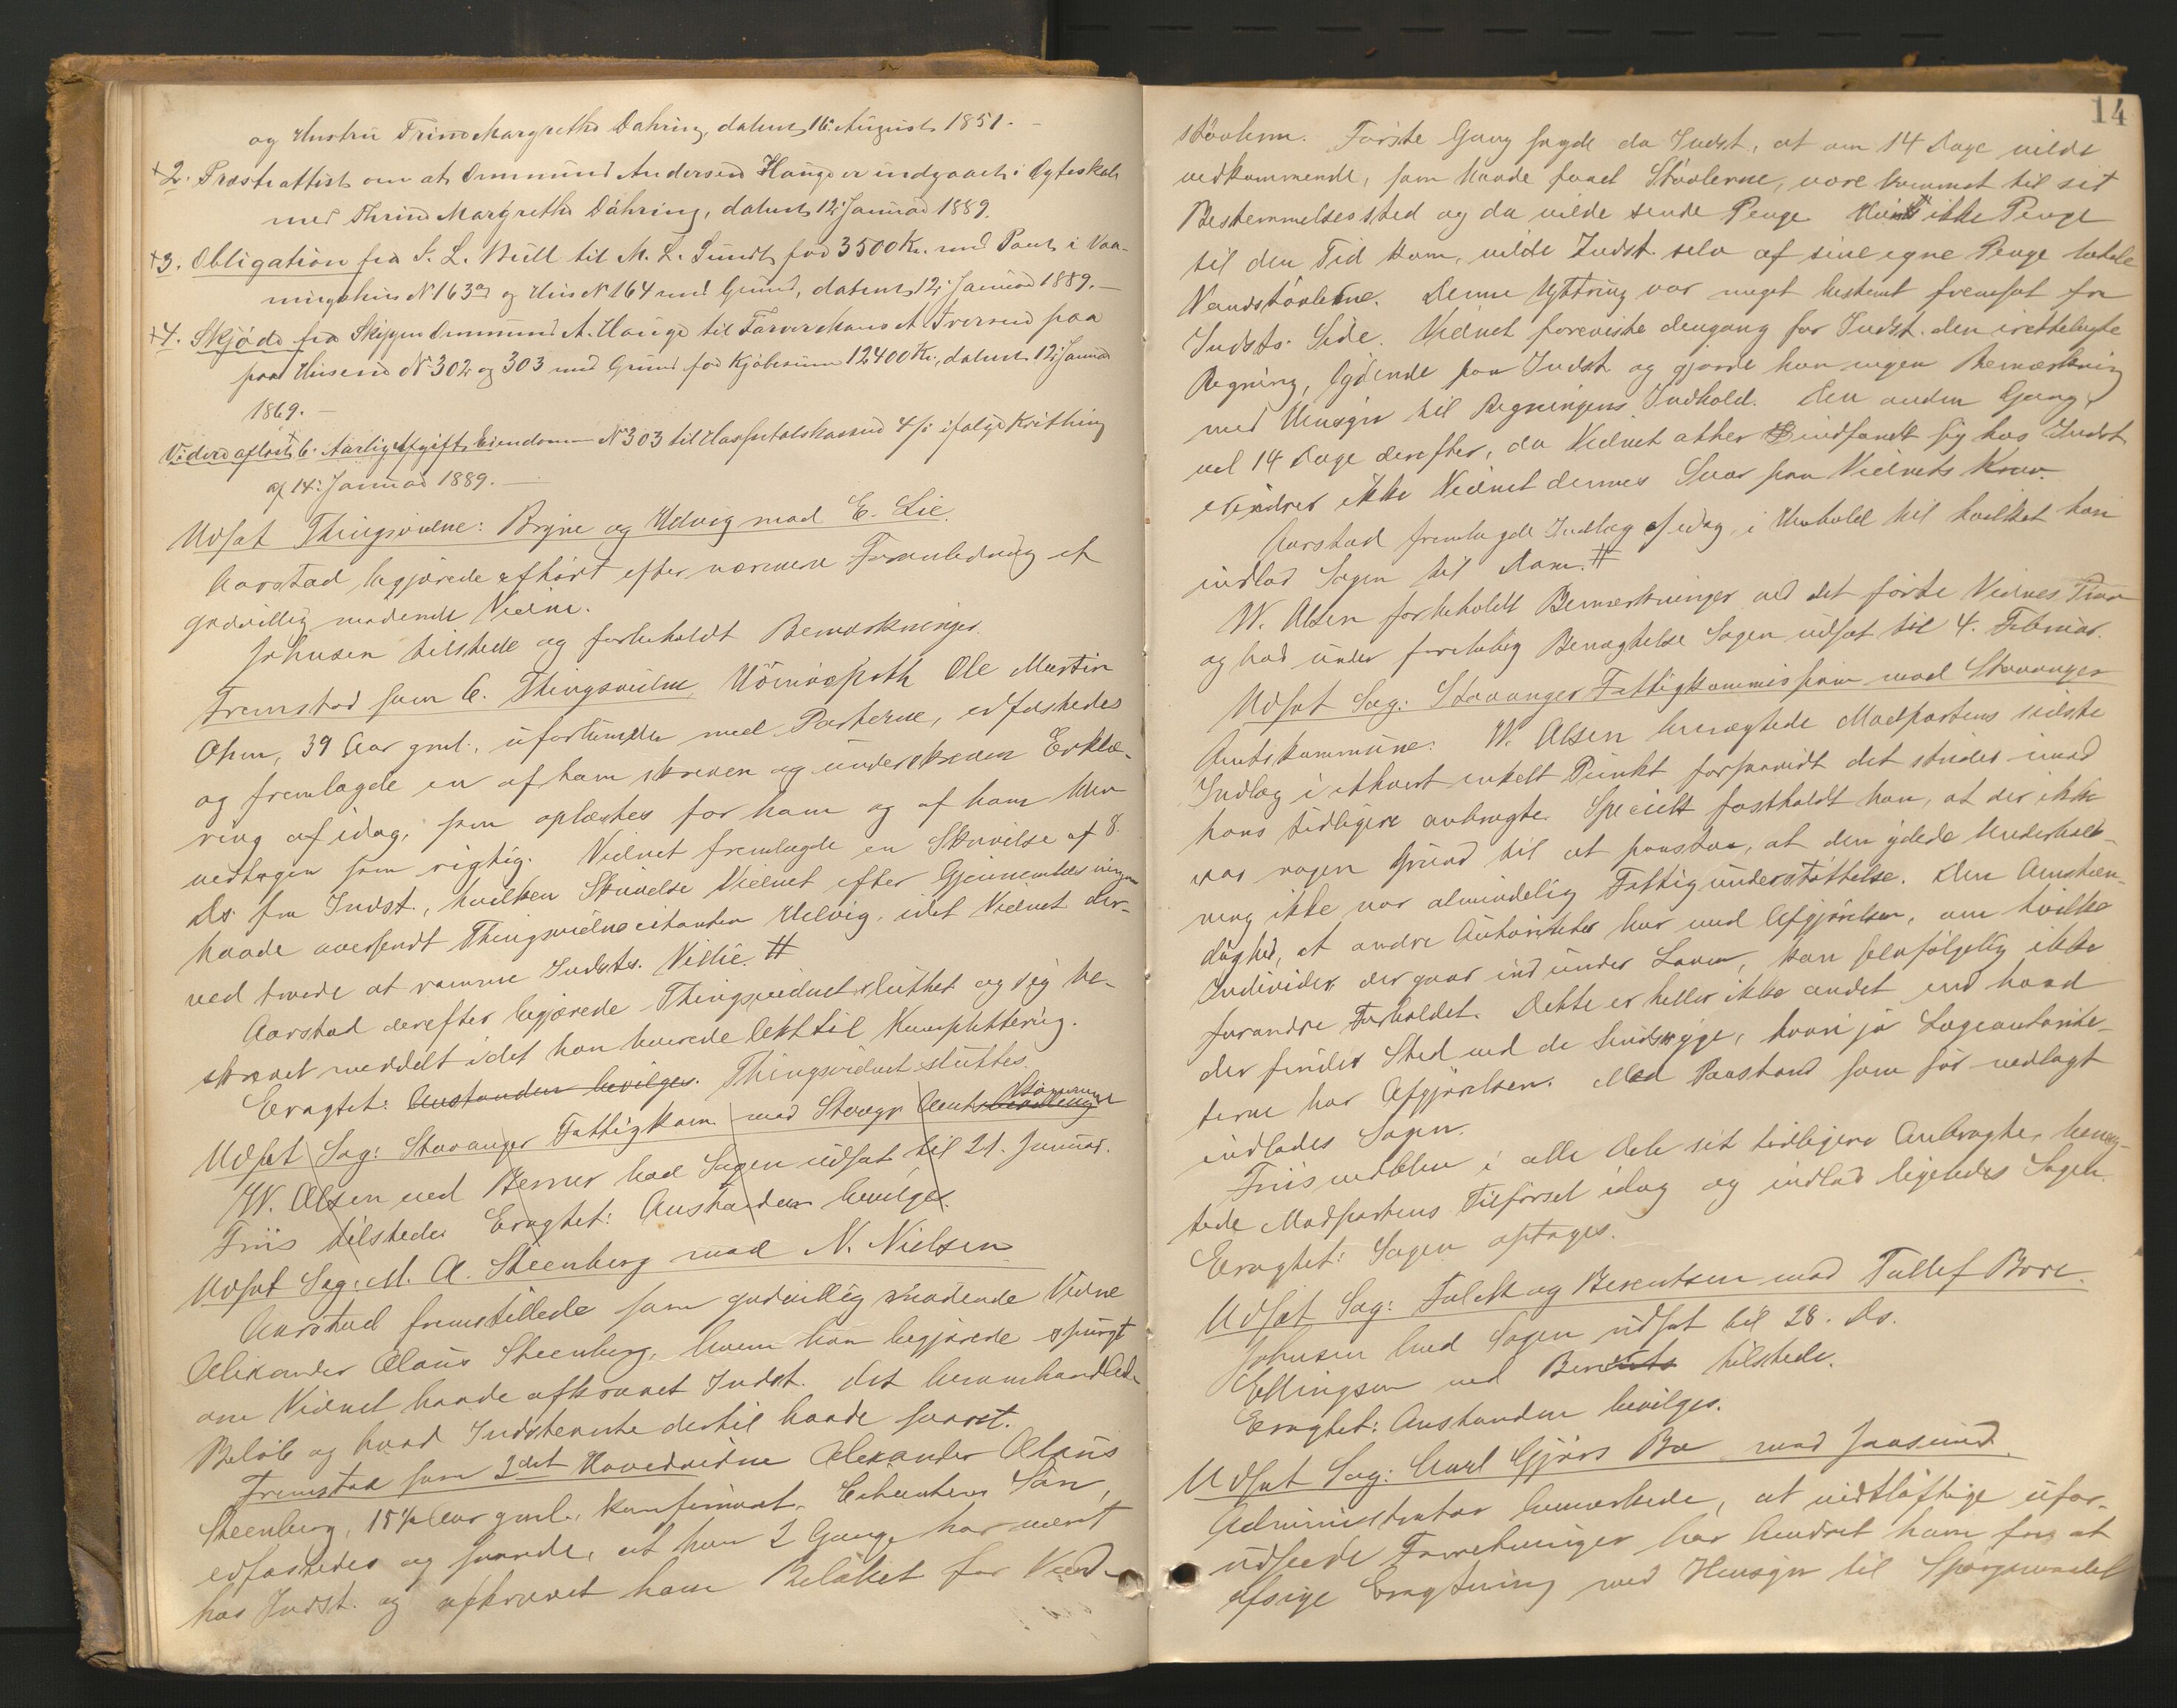 og Hustru Trine Margrethe Dahring, datert 16 August 1851. -
+2. Præsteattist om at Ommund Andersen Hauge er indgaaet i Ægteskab
med Thrine Margrethe Dahring, datert 12 Januar 1889.
+3. Obligation fra S. L. Bull til M. L. Sundt for 3500 Kr. med Pant i Vaa-
ningshus N 163a og Hus N 164 med Grund, datert 12 Januar 1889. -
+4. Skjøde fra Skipper Ommund A. Hauge til Farver Hans A. Iversen paa
paa Husene N 302 og 303 med Grund for Kjøbesum 12400 Kr., datert 12 Januar
1869. -
Videre aflæst 6. Aarlig Afgift Eiendom N 303 til Hospitalskassen 4 ifølge Kvittering
af 14 Januar 1889. -
Udsat Thingsvidne: Bryne og Helvig mod E. Lie.
Aarstad begjærede afhørt efter nærmere Foranledning et
godvillig mødende Vidne.
Johnsen tilstede og forbeholdt Bemærkninger.
Fremstod som 6. Thingsvidne Homöopath Ole Martin
Olsen, 39 Aar gml., uforbunden med Parterne, edfæstedes
og fremlagde en af ham skreven og underskreven Erklæ-
ring af idag, som oplæstes for ham og af ham blev
vedtagen som rigtig. Vidnet fremlagde en Skrivelse af 8.
Ds. fra Indst., hvilken Skrivelse Vidnet efter Gjennemlæsningen
havde oversendt Thingsvidnecitanten Helvig, idet Vidnet der-
ved troede at ramme Indsts. Villie. #
Aarstad derefter begjærede Thingsvidnet sluttet og sig be-
skrevet meddelt idet han leverede lett til Komplettering.
Eragtet: Anstanden bevilges. Thingsvidnet sluttes.
Udsat Sag: Stavanger Fattigkom. mod Stavgr Amtskommune
W. Olsen ved Berner bad Sagen udsat til 21. Januar.
Friis tilstede. Eragtet: Anstanden bevilges.
Udsat Sag: M. A. Steenberg mod N. Nielsen
Aarstad fremstillede som godvillig mødende Vidne
Alexander Olaus Steenberg, hvem han begjærede spurgt
om Vidnet havde afkrævet Indst. det heromhandlede
Beløb og hvad Indstevnte dertil havde svaret.
Fremstod som 2det Hovedvidne Alexander Olaus
Steenberg, 15½ Aar gml., konfirmeret, Citantens Søn,
edfæstedes og svarede, at han 2 Gange har været
hos Indst. og afkrævet ham Beløbet for Vand-
14
støvlerne. Første Gang sagde da Indst., at om 14 Dage vilde
vedkommende, som havde faaet Støvlerne, være kommet til sit
Bestemmelsessted og da vilde sende Penge. Hvis ikke Penge
til den Tid kom, vilde Indst. selv af sine egne Penge betale
Vandstøvlerne. Denne Yttring var meget bestemt fremsat fra
Indsts. Side. Vidnet foreviste dengang for Indst. den irettelagte
Regning, lydende paa Indst. og gjorde han ingen Bemærkning
med Hensyn til Regningens Indhold. Den anden Gang,
vel 14 Dage derefter, da Vidnet atter indfandt sig hos Indst.
erindrer ikke Vidnet dennes Svar paa Vidnets Krav.
Aarstad fremlagde Indlæg af idag, i Henhold til hvilket han
indlod Sagen til Dom. #
W. Olsen forbeholdt Bemærkninger ved det første Vidnes
og bad under foreløbig Benægtelse Sagen udsat til 4. Februar.
Udsat Sag: Stavanger Fattigkommission mod Stavanger
Amtskommune: W. Olsen benægtede Modpartens sidste
Indlæg i ethvert enkelt Punkt forsaavidt det strider imod
hans tidligere anbragte. Specielt fastholdt han, at der ikke
var nogen Grund til at paastaa, at den ydede Underhold-
ning ikke var almindelig Fattigunderstøttelse. Den Omstæn-
dighed, at andre Autoriteter har med Afgjørelsen, om hvilke
Individer der gaar ind under Loven, kan selvfølgelig ikke
forandre Forholdet. Dette er heller ikke andet end hvad
der finder Sted ved de Sindssyge, hvori jo Lægeautorite-
terne har Afgjørelsen. Med Paastand som før nedlagt
indlodes Sagen.
Friis vedblev i alle Dele sit tidligere Anbragte, benæg-
tede Modpartens Tilførsel idag og indlod ligeledes Sagen.
Eragtet: Sagen optages.
Udsat Sag: Falck og Berentsen mod Tallef Bore.
Johnsen bad Sagen udsat til 28. Ds.
Ellingsen ved Berents tilstede.
Eragtet: Anstanden bevilges.
Udsat Sag: Carl Gjørs Bo mod Jaasund.
Administrator bemærkede, at vidtløftige ufor-
udseede Forretninger har hindret ham fra at
afsige Eragtning med Hensyn til Spørgsmaalet